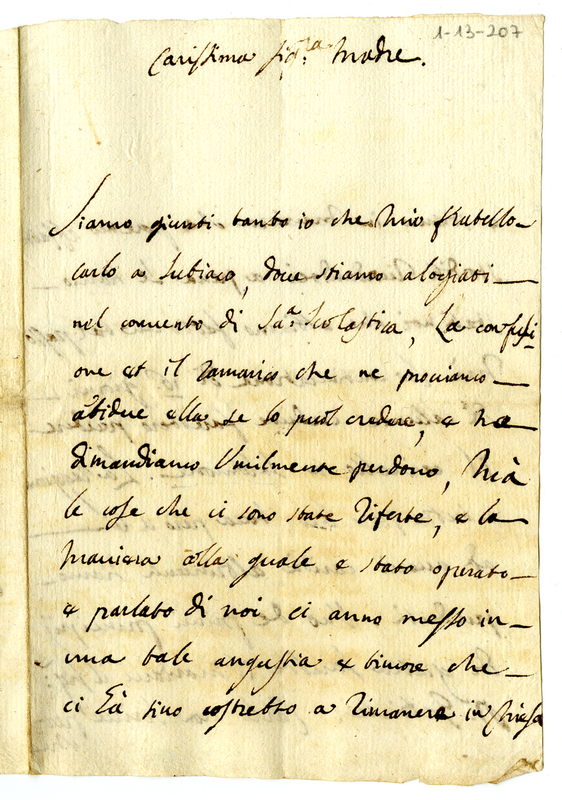 1-13-207
Carissima sig.ra Madre.
Siamo giunti tanto io che mio fratello
carlo a Subiaco, dove stiamo alogiati
nel convento di Sa.a Scolastica, La confusi-
one et il ramarico che ne proviamo
ābidue ella se lo puol credere, e ne
dimandiamo Umilmente perdono, Mà
le cose che ci sono state riferte, e la
maniera colla quale e stato operato
e parlato di noi ci anno messo in
una tale angustia e timore che
ci hà sino costretto a rimanere in Chiesa